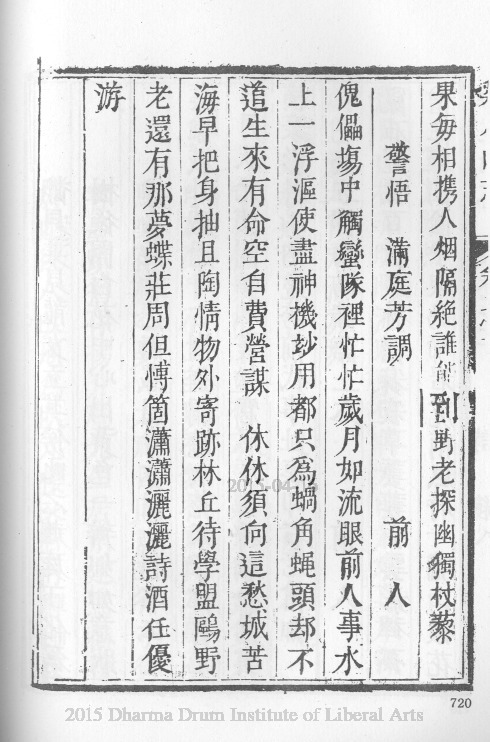 果每相携人烟隔絶誰能到野老探幽獨杖藜
警悟 滿庭芳調 前人
傀儡塲中觸蠻隊裡忙忙歲月如流眼前人事水
上一浮漚使盡神機玅用都只為蝸角蝇頭却不
道生來有命空自費營謀 休休須何這愁城苦
海早把身抽且陶情物外寄跡林丘待學盟鷗野
老還有那夢蝶莊周但愽箇瀟瀟灑灑詩酒任優
游
720
2015 Dharma Drum Institute of Liberal Arts